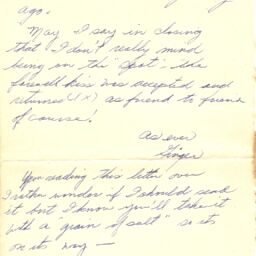 ago.
May I say in closing
that I don't really mind
being on the "spot" - the
farewell kiss was accepted and
returned (1X) as friend to friend
of course!
As ever
Ginger
reading this letter over
I rather wonder if I should send
it but I know you'll take it
with a "grain of salt" so its
on its way —